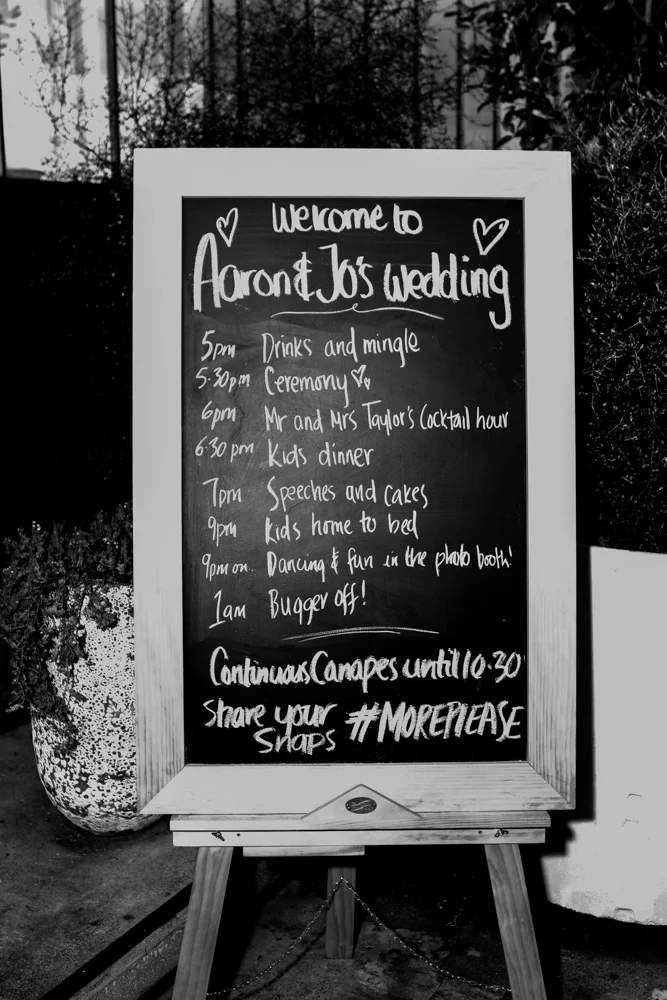 Welcome to
Aaron & Jo's Wedding
5pm Drinks and mingle
5.30pm Ceremony
6pm Mr and Mrs Taylor's Cocktail hour
6.30pm Kids dinner
7pm Speeches and cakes
9pm Kids home to bed
9pm on.. Dancing & fun in the photo booth!
1am Bugger off!
Continuous Canapes until 10.30
Share your #MOREPIEASE
Snaps